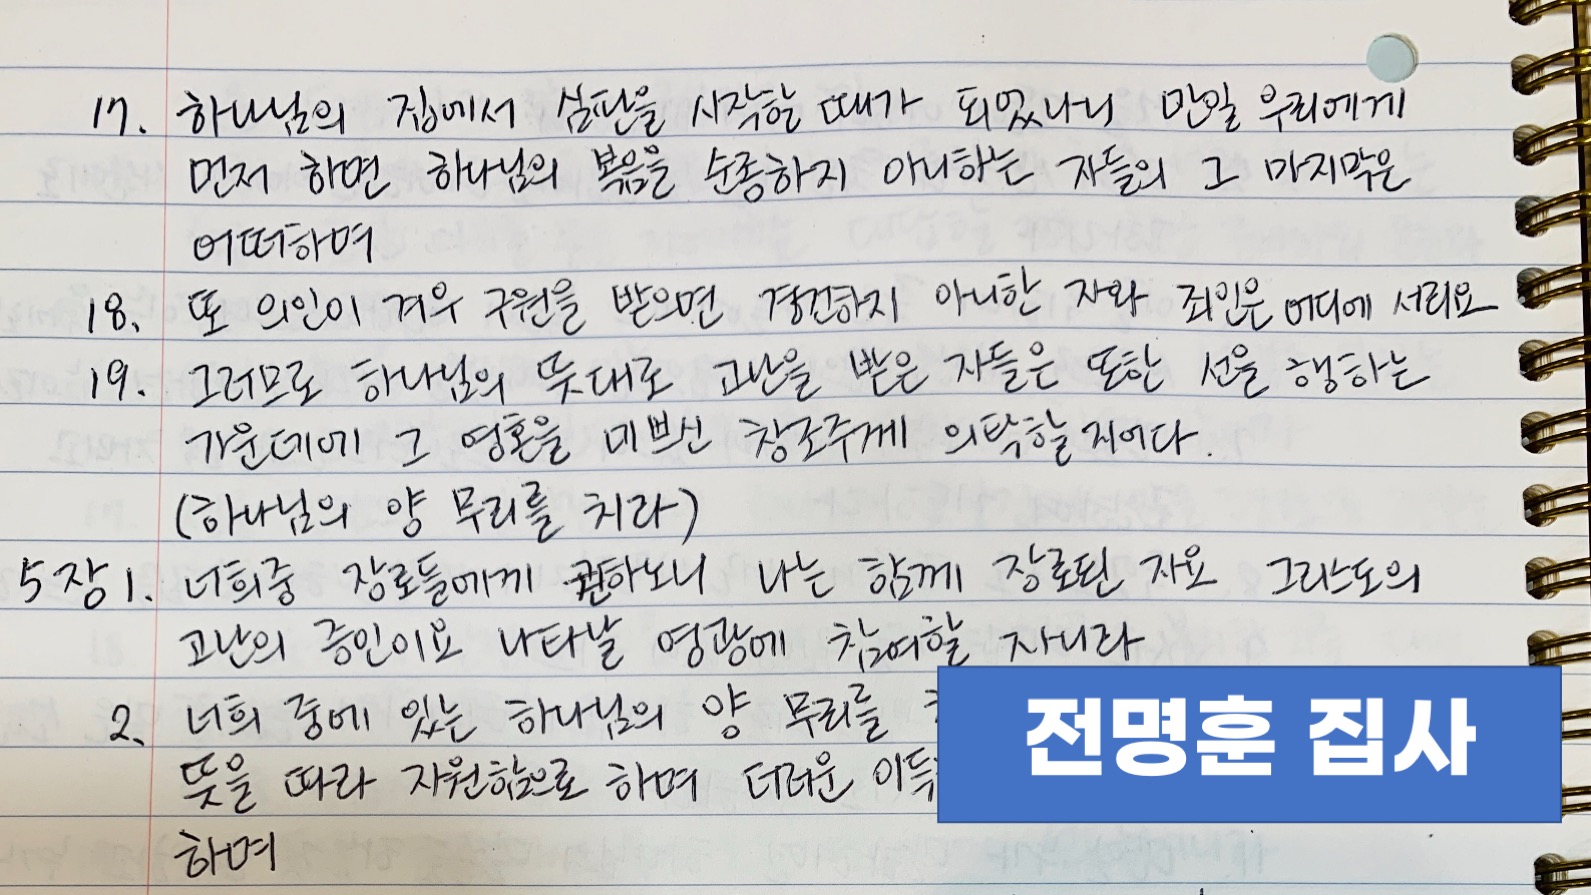 17. 하나님의 집에서 심판을 시작할 때가 되었나니 만일 우리에게
먼저 하면 하나님의 복음을 순종하지 아니하는 자들의 그 마지막은
어떠하며
18. 또 의인이 겨우 구원을 받으면 경건하지 아니한 자와 죄인은 어디에 서리요
19. 그러므로 하나님의 뜻대로 고난을 받은 자들은 또한 선을 행하는
가운데에 그 영혼을 미쁘신 창조주께 의탁할지어다.
(하나님의 양 무리를 치라)
5장 1. 너희중 장로들에게 권하노니 나는 함께 장로된 자요 그리스도의
고난의 증인이요 나타날 영광에 참여할 자니라
2. 너희 중에 있는 하나님의 양 무리를
뜻을 따라 자원함으로 하며 더러운 이득
하며
전명훈 집사